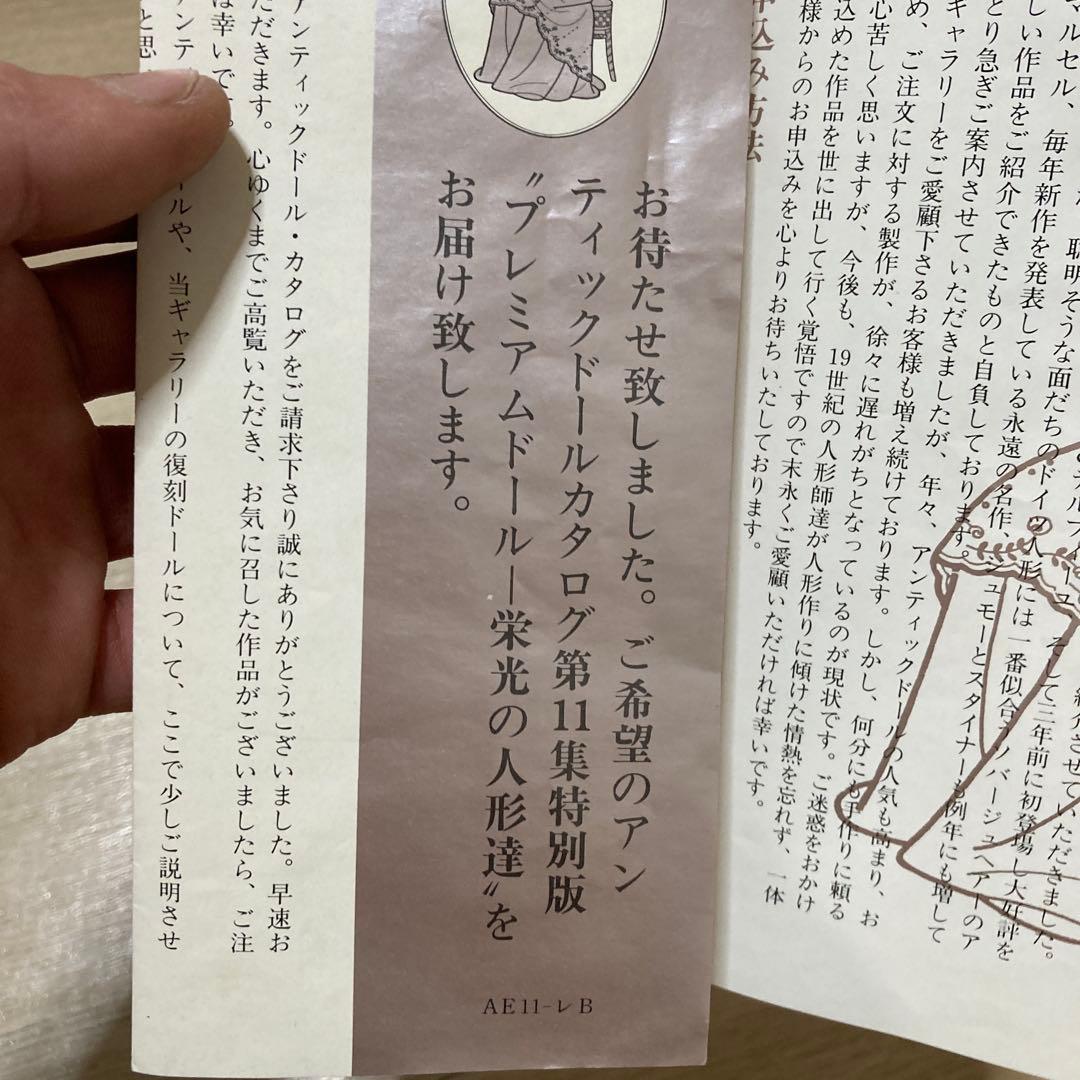 お待たせ致しました。ご希望のアン
ティックドールカタログ第11集特別版
〝プレミアムドール―栄光の人形達〟を
お届け致します。
AE11-レB
アンティックドール・カタログをご請求下さり誠にありがとうございました。早速お
だきます。心ゆくまでご高覧いただき、お気に召した作品がございましたら、ご注
は幸いです。
ルや、当ギャラリーの復刻ドールについて、ここで少しご説明させ
と思
紹介させていただきました。
そして三年前に初登場し大好評を
マルセル、
聡明そうな面だちのドイツ人形には一番似合う
毎年新作を発表している永遠の名作、ジュモーとスタイナーも例年にも増して
しい作品をご紹介できたものと自負しております。
とり急ぎご案内させていただきましたが、年々、アンティックドールの人気も高まり、お
ギャラリーをご愛顧下さるお客様も増え続けております。しかし、何分にも手作りに頼る
め、ご注文に対する製作が、徐々に遅れがちとなっているのが現状です。ご迷惑をおかけ
心苦しく思いますが、今後も、19世紀の人形師達が人形作りに傾けた情熱を忘れず、一体
込めた作品を世に出して行く覚悟ですので末永くご愛顧いただければ幸いです。
様からのお申込みを心よりお待ちいたしております。
申込み方法